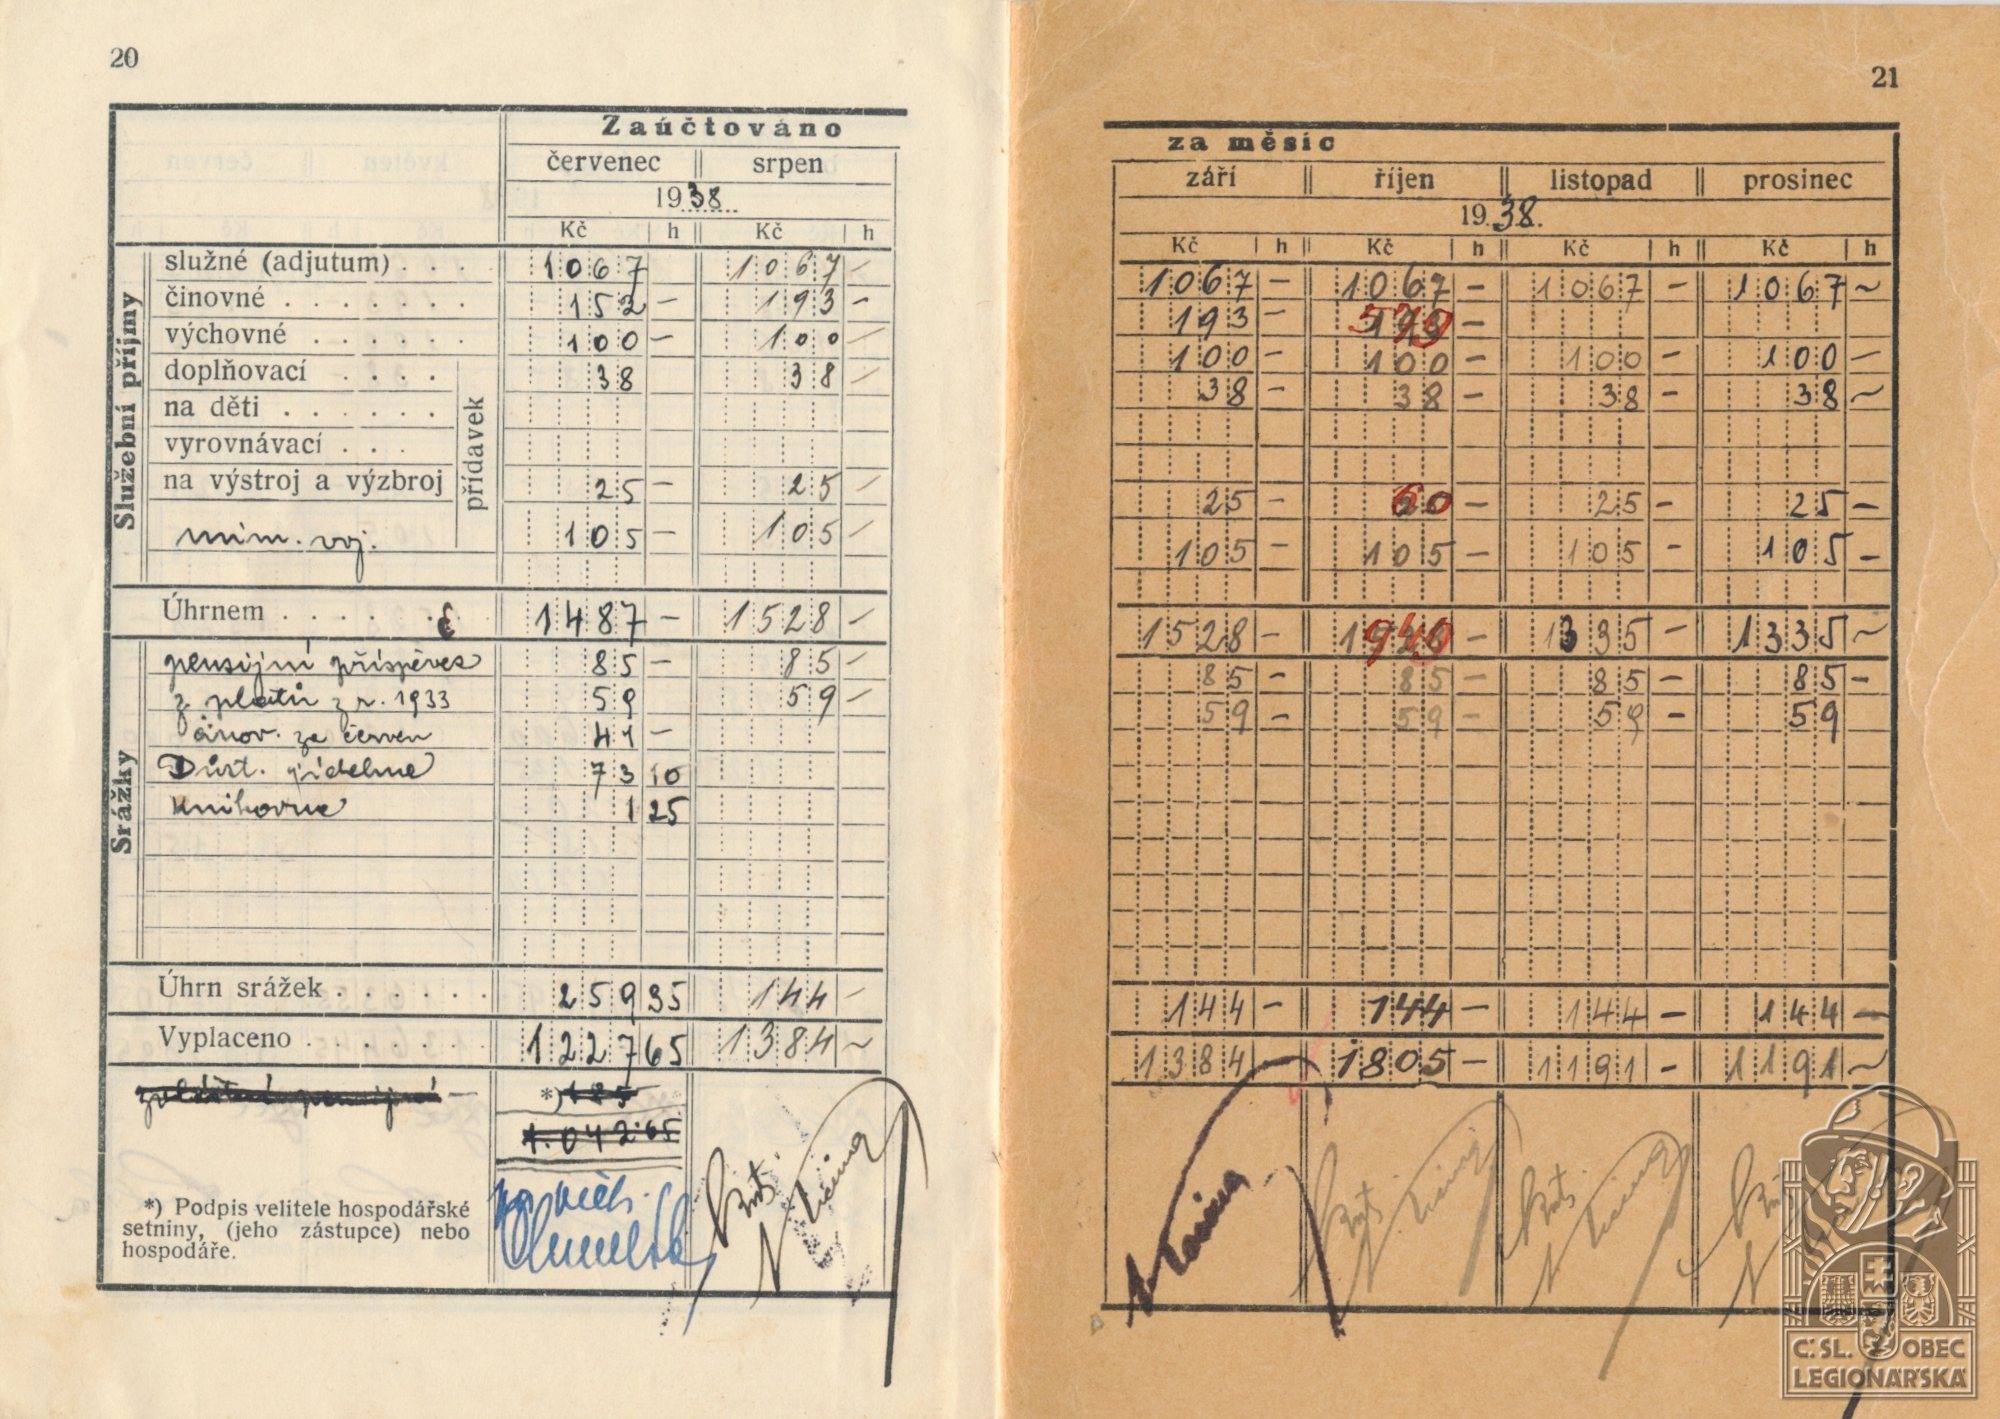 20
Zaúčtováno
červenec srpen
1938
Kč h Kč h
Služební příjmy
služné (adjutum) . . . 1067 1067 —
činovné . . . . . . 152 — 193 —
výchovné . . . . . 100 — 100 —
doplňovací . . . . 38 38 —
na děti . . . . . .
vyrovnávací . . .
na výstroj a výzbroj 25 — 25 —
přídavek
mim. voj. 105 — 105 —
Úhrnem . . . . . 1487 — 1528 —
Srážky
pensijní příspěvek 85 — 85 —
z platů z r. 1933 59 59 —
činov. za červen 41 —
Důst. jídelna 73 10
Knihovna 1 25
Úhrn srážek . . . . . . 259 35 144 —
Vyplaceno . . . . . . . 1227 65 1384 —
*) 185
1.042.65
*) Podpis velitele hospodářské
setniny, (jeho zástupce) nebo
hospodáře.
21
za měsíc
září říjen listopad prosinec
1938.
Kč h Kč h Kč h Kč h
1067 — 1067 — 1067 — 1067 —
193 — 579 —
100 — 100 — 100 — 100 —
38 — 38 — 38 — 38 —
25 — 60 — 25 — 25 —
105 — 105 — 105 — 105 —
1528 — 1949 — 1335 — 1335 —
85 — 85 — 85 — 85 —
59 — 59 — 59 — 59
144 — 144 — 144 — 144 —
1384 1805 — 1191 — 1191 —
Č. SL. OBEC
LEGIONÁŘSKÁ